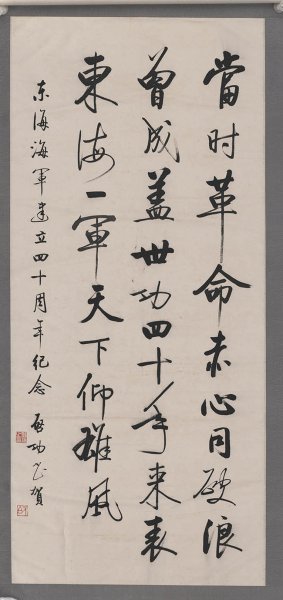 當时革命赤心同破浪
曾成蓋世功四十年来表
東海一軍天下仰雄風
东海海軍建立四十周年纪念 啟功书賀